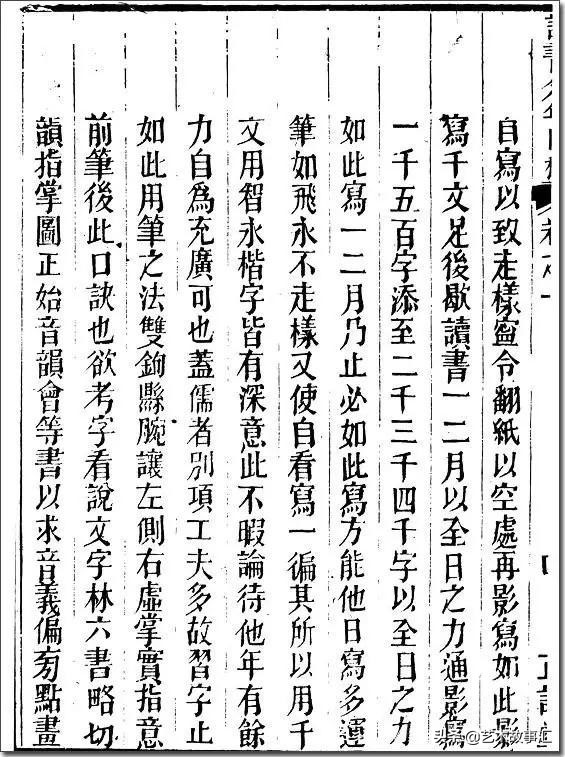 自寫以致走樣寧令翻紙以空處再影寫如此影
寫千文足後歇讀書一二月以全日之力通影寫
一千五百字添至二千三千四千字以全日之力
如此寫一二月乃止必如此寫方能他日寫多運
筆如飛永不走樣又使自看寫一徧其所以用千
文用智永楷字皆有深意此不暇論待他年有餘
力自爲充廣可也蓋儒者別項工夫多故習字止
如此用筆之法雙鉤縣腕讓左側右虛掌實指意
前筆後此口訣也欲考字看說文字林六書略切
韻指掌圖正始音韻會等書以求音義偏旁點畫
头条@艺术故事汇